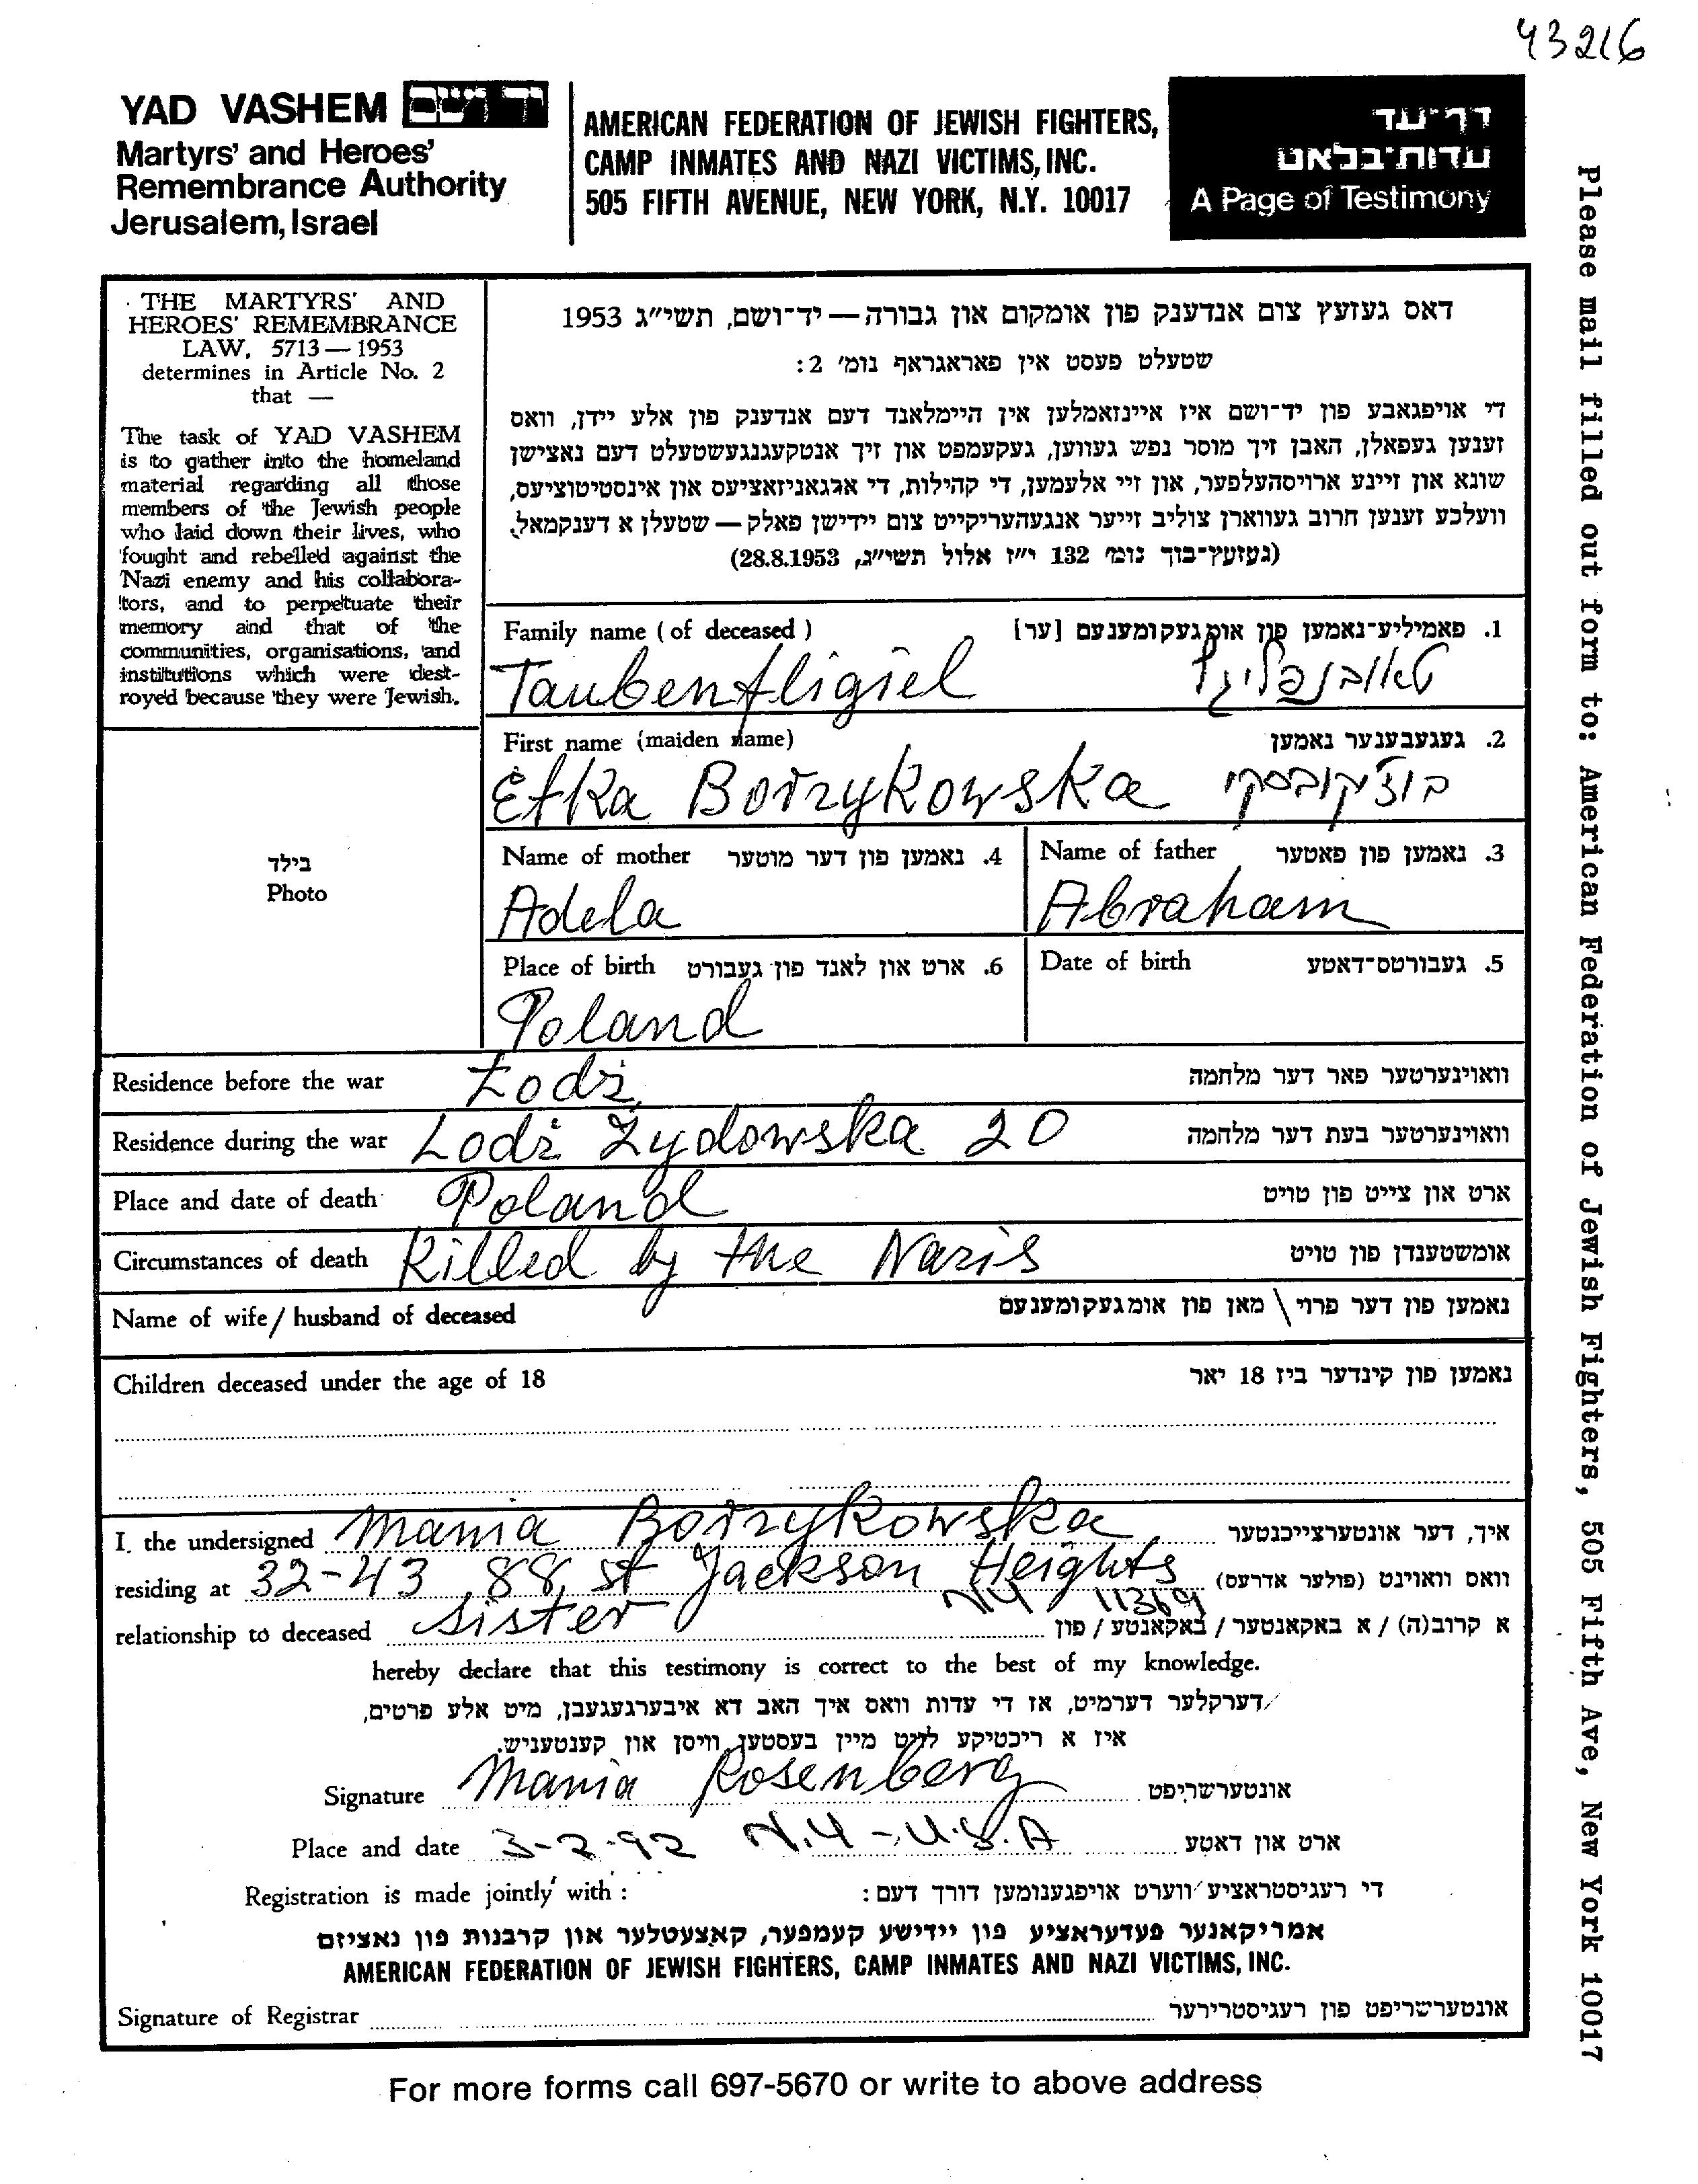 43216
YAD VASHEM יד ושם
Martyrs' and Heroes'
Remembrance Authority
Jerusalem, Israel
AMERICAN FEDERATION OF JEWISH FIGHTERS,
CAMP INMATES AND NAZI VICTIMS, INC.
505 FIFTH AVENUE, NEW YORK, N.Y. 10017
דף־עד
עדות־בלאט
A Page of Testimony
THE MARTYRS' AND
HEROES' REMEMBRANCE
LAW, 5713 — 1953
determines in Article No. 2
that —
The task of YAD VASHEM
is to gather into the homeland
material regarding all those
members of the Jewish people
who laid down their lives, who
fought and rebelled against the
Nazi enemy and his collabora-
tors, and to perpetuate their
memory and that of the
communities, organisations, and
institutions which were dest-
royed because they were Jewish.
דאס געזעץ צום אנדענק פון אומקום און גבורה — יד־ושם, תשי״ג 1953
שטעלט פעסט אין פאראגראף נומ׳ 2:
די אויפגאבע פון יד־ושם איז איינזאמלען אין היימלאנד דעם אנדענק פון אלע יידן, וואס
זענען געפאלן, האבן זיך מוסר נפש געווען, געקעמפט און זיך אנטקעגנגעשטעלט דעם נאצישן
שונא און זיינע ארויסהעלפער, און זיי אלעמען, די קהילות, די ארגאניזאציעס און אינסטיטוציעס,
וועלכע זענען חרוב געווארן צוליב זייער אנגעהעריקייט צום יידישן פאלק — שטעלן א דענקמאל.
(געזעץ־בוך נומ׳ 132 י״ז אלול תשי״ג, 28.8.1953)
Family name (of deceased) 1. פאמיליע־נאמען פון אומגעקומענעם [ער]
Taubenfligiel טאובנפליגל
First name (maiden name) 2. געגעבענער נאמען
Etka Borzykowska בוז׳קובסקי
Name of mother 4. נאמען פון דער מוטער Name of father 3. נאמען פון פאטער
Adela Abraham
Place of birth 6. ארט און לאנד פון געבורט Date of birth 5. געבורטס־דאטע
Poland
בילד
Photo
Residence before the war Łodż וואוינערטער פאר דער מלחמה
Residence during the war Lodż Żydowska 20 וואוינערטער בעת דער מלחמה
Place and date of death Poland ארט און צייט פון טויט
Circumstances of death Killed by the Nazis אומשטענדן פון טויט
Name of wife / husband of deceased נאמען פון דער פרוי \ מאן פון אומגעקומענעם
Children deceased under the age of 18 נאמען פון קינדער ביז 18 יאר
I, the undersigned Mania Borzykowska איך, דער אונטערצייכנטער
residing at 32-43 88 st Jackson Heights וואס וואוינט (פולער אדרעס)
NY 11369
relationship to deceased Sister א קרוב(ה) / א באקאנטער / באקאנטע / פון
hereby declare that this testimony is correct to the best of my knowledge.
דערקלער דערמיט, אז די עדות וואס איך האב דא איבערגעגעבן, מיט אלע פרטים,
איז א ריכטיקע לויט מיין בעסטען וויסן און קענטעניש.
Signature Mania Rosenberg אונטערשריפט
Place and date 3-2-92 N.Y - U.S.A ארט און דאטע
Registration is made jointly with : די רעגיסטראציע ווערט אויפגענומען דורך דעם :
אמריקאנער פעדעראציע פון יידישע קעמפער, קאצעטלער און קרבנות פון נאציזם
AMERICAN FEDERATION OF JEWISH FIGHTERS, CAMP INMATES AND NAZI VICTIMS, INC.
Signature of Registrar אונטערשריפט פון רעגיסטרירער
For more forms call 697-5670 or write to above address
Please mail filled out form to: American Federation of Jewish Fighters, 505 Fifth Ave, New York 10017